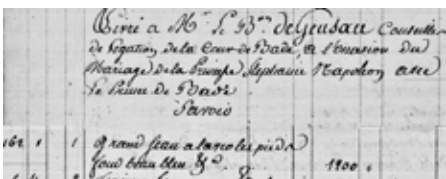 Livré à Mr. Le Bon. de Geusau Conseiller
de légation de la Cour de Bade, à l'occasion du
Mariage de la Princesse Stephanie Napoleon avec
le Prince de Bade
Savoir
162 1 1 Grand 
fond beau bleu &a. 1900 "